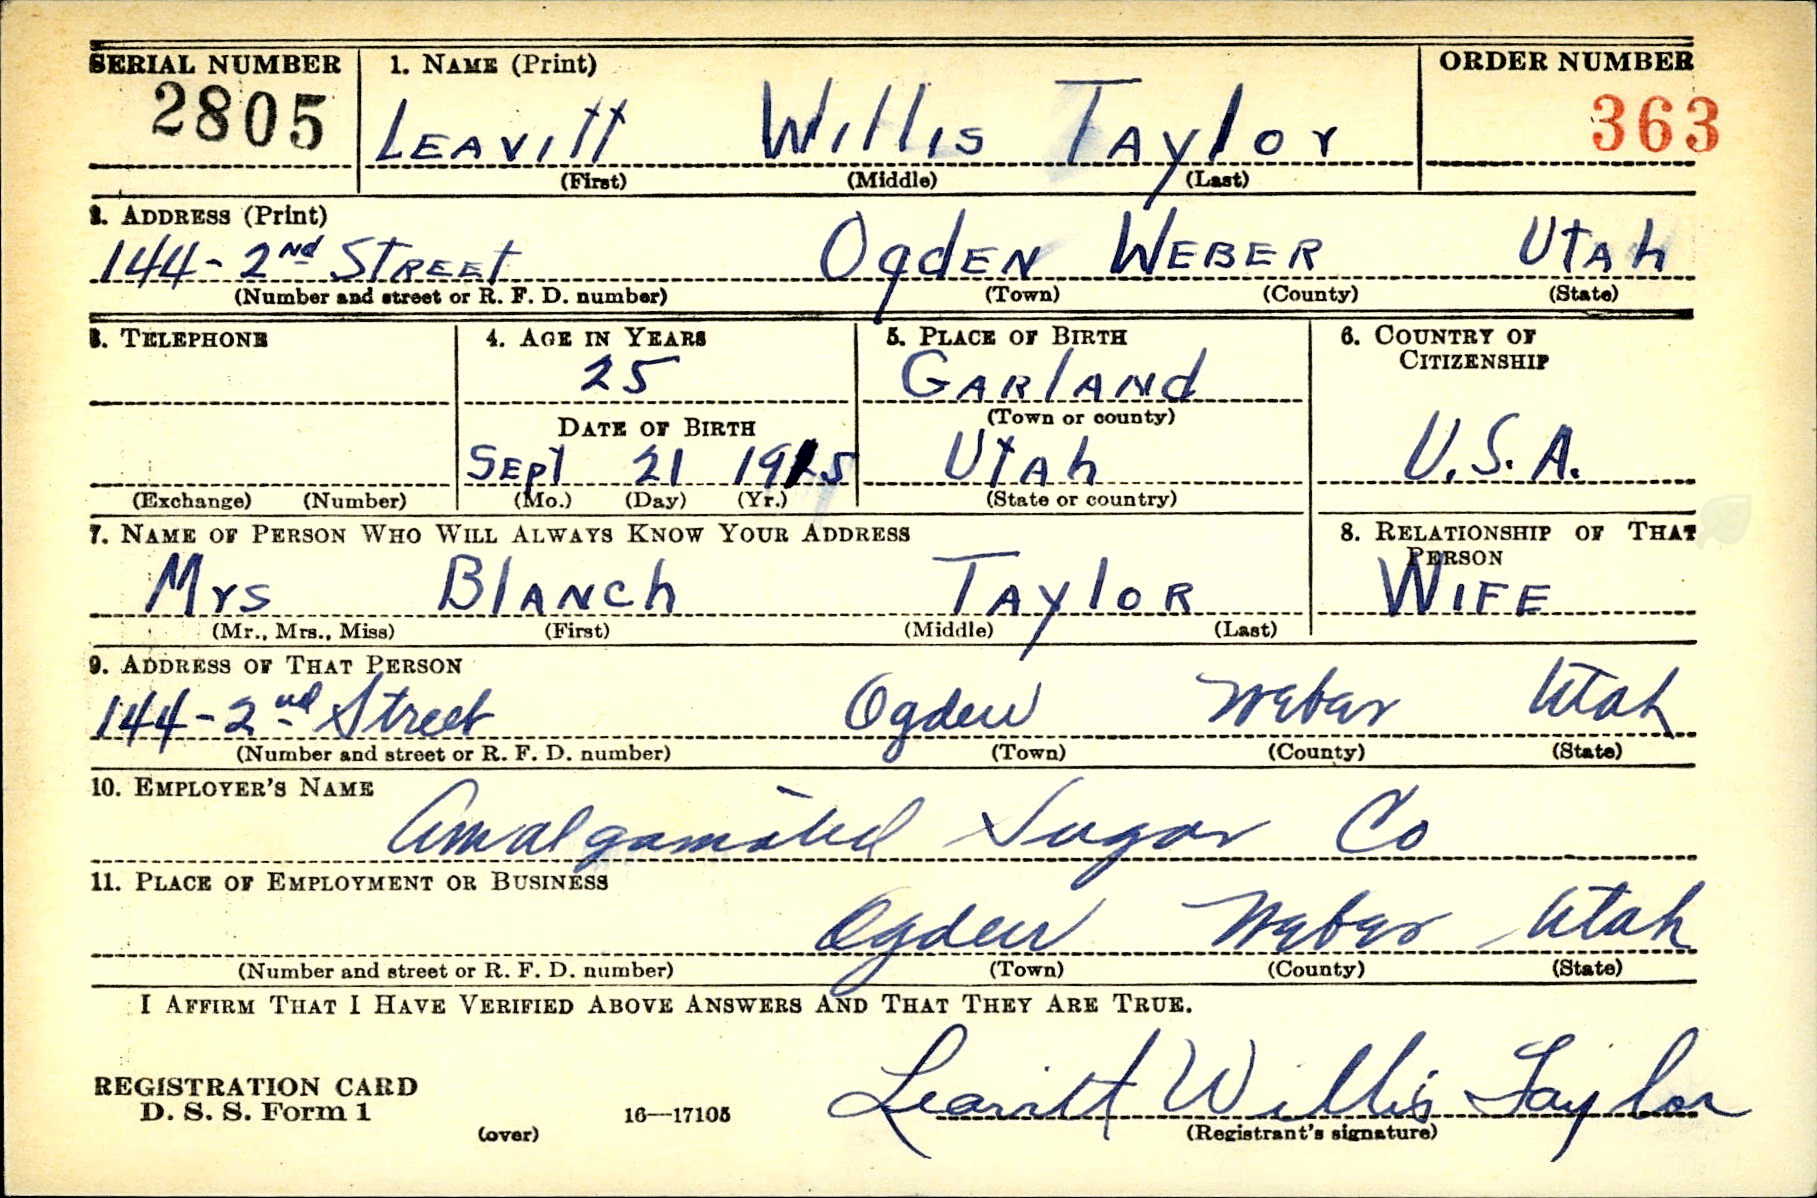 SERIAL NUMBER 1. NAME (Print) ORDER NUMBER
2805 LEAVITT WILLIS TAYLOR 363
(First) (Middle) (Last)
2. ADDRESS (Print)
144 - 2ND STREET OGDEN WEBER UTAH
(Number and street or R. F. D. number) (Town) (County) (State)
3. TELEPHONE 4. AGE IN YEARS 5. PLACE OF BIRTH 6. COUNTRY OF CITIZENSHIP
25 GARLAND
(Town or county)
DATE OF BIRTH
SEPT 21 1915 UTAH U.S.A.
(Exchange) (Number) (Mo.) (Day) (Yr.) (State or country)
7. NAME OF PERSON WHO WILL ALWAYS KNOW YOUR ADDRESS 8. RELATIONSHIP OF THAT PERSON
MRS BLANCH TAYLOR WIFE
(Mr., Mrs., Miss) (First) (Middle) (Last)
9. ADDRESS OF THAT PERSON
144 - 2nd Street Ogden Weber Utah
(Number and street or R. F. D. number) (Town) (County) (State)
10. EMPLOYER'S NAME
Amalgamated Sugar Co
11. PLACE OF EMPLOYMENT OR BUSINESS
Ogden Weber Utah
(Number and street or R. F. D. number) (Town) (County) (State)
I AFFIRM THAT I HAVE VERIFIED ABOVE ANSWERS AND THAT THEY ARE TRUE.
REGISTRATION CARD
D. S. S. Form 1 16—17105 Leavitt Willis Taylor
(over) (Registrant's signature)